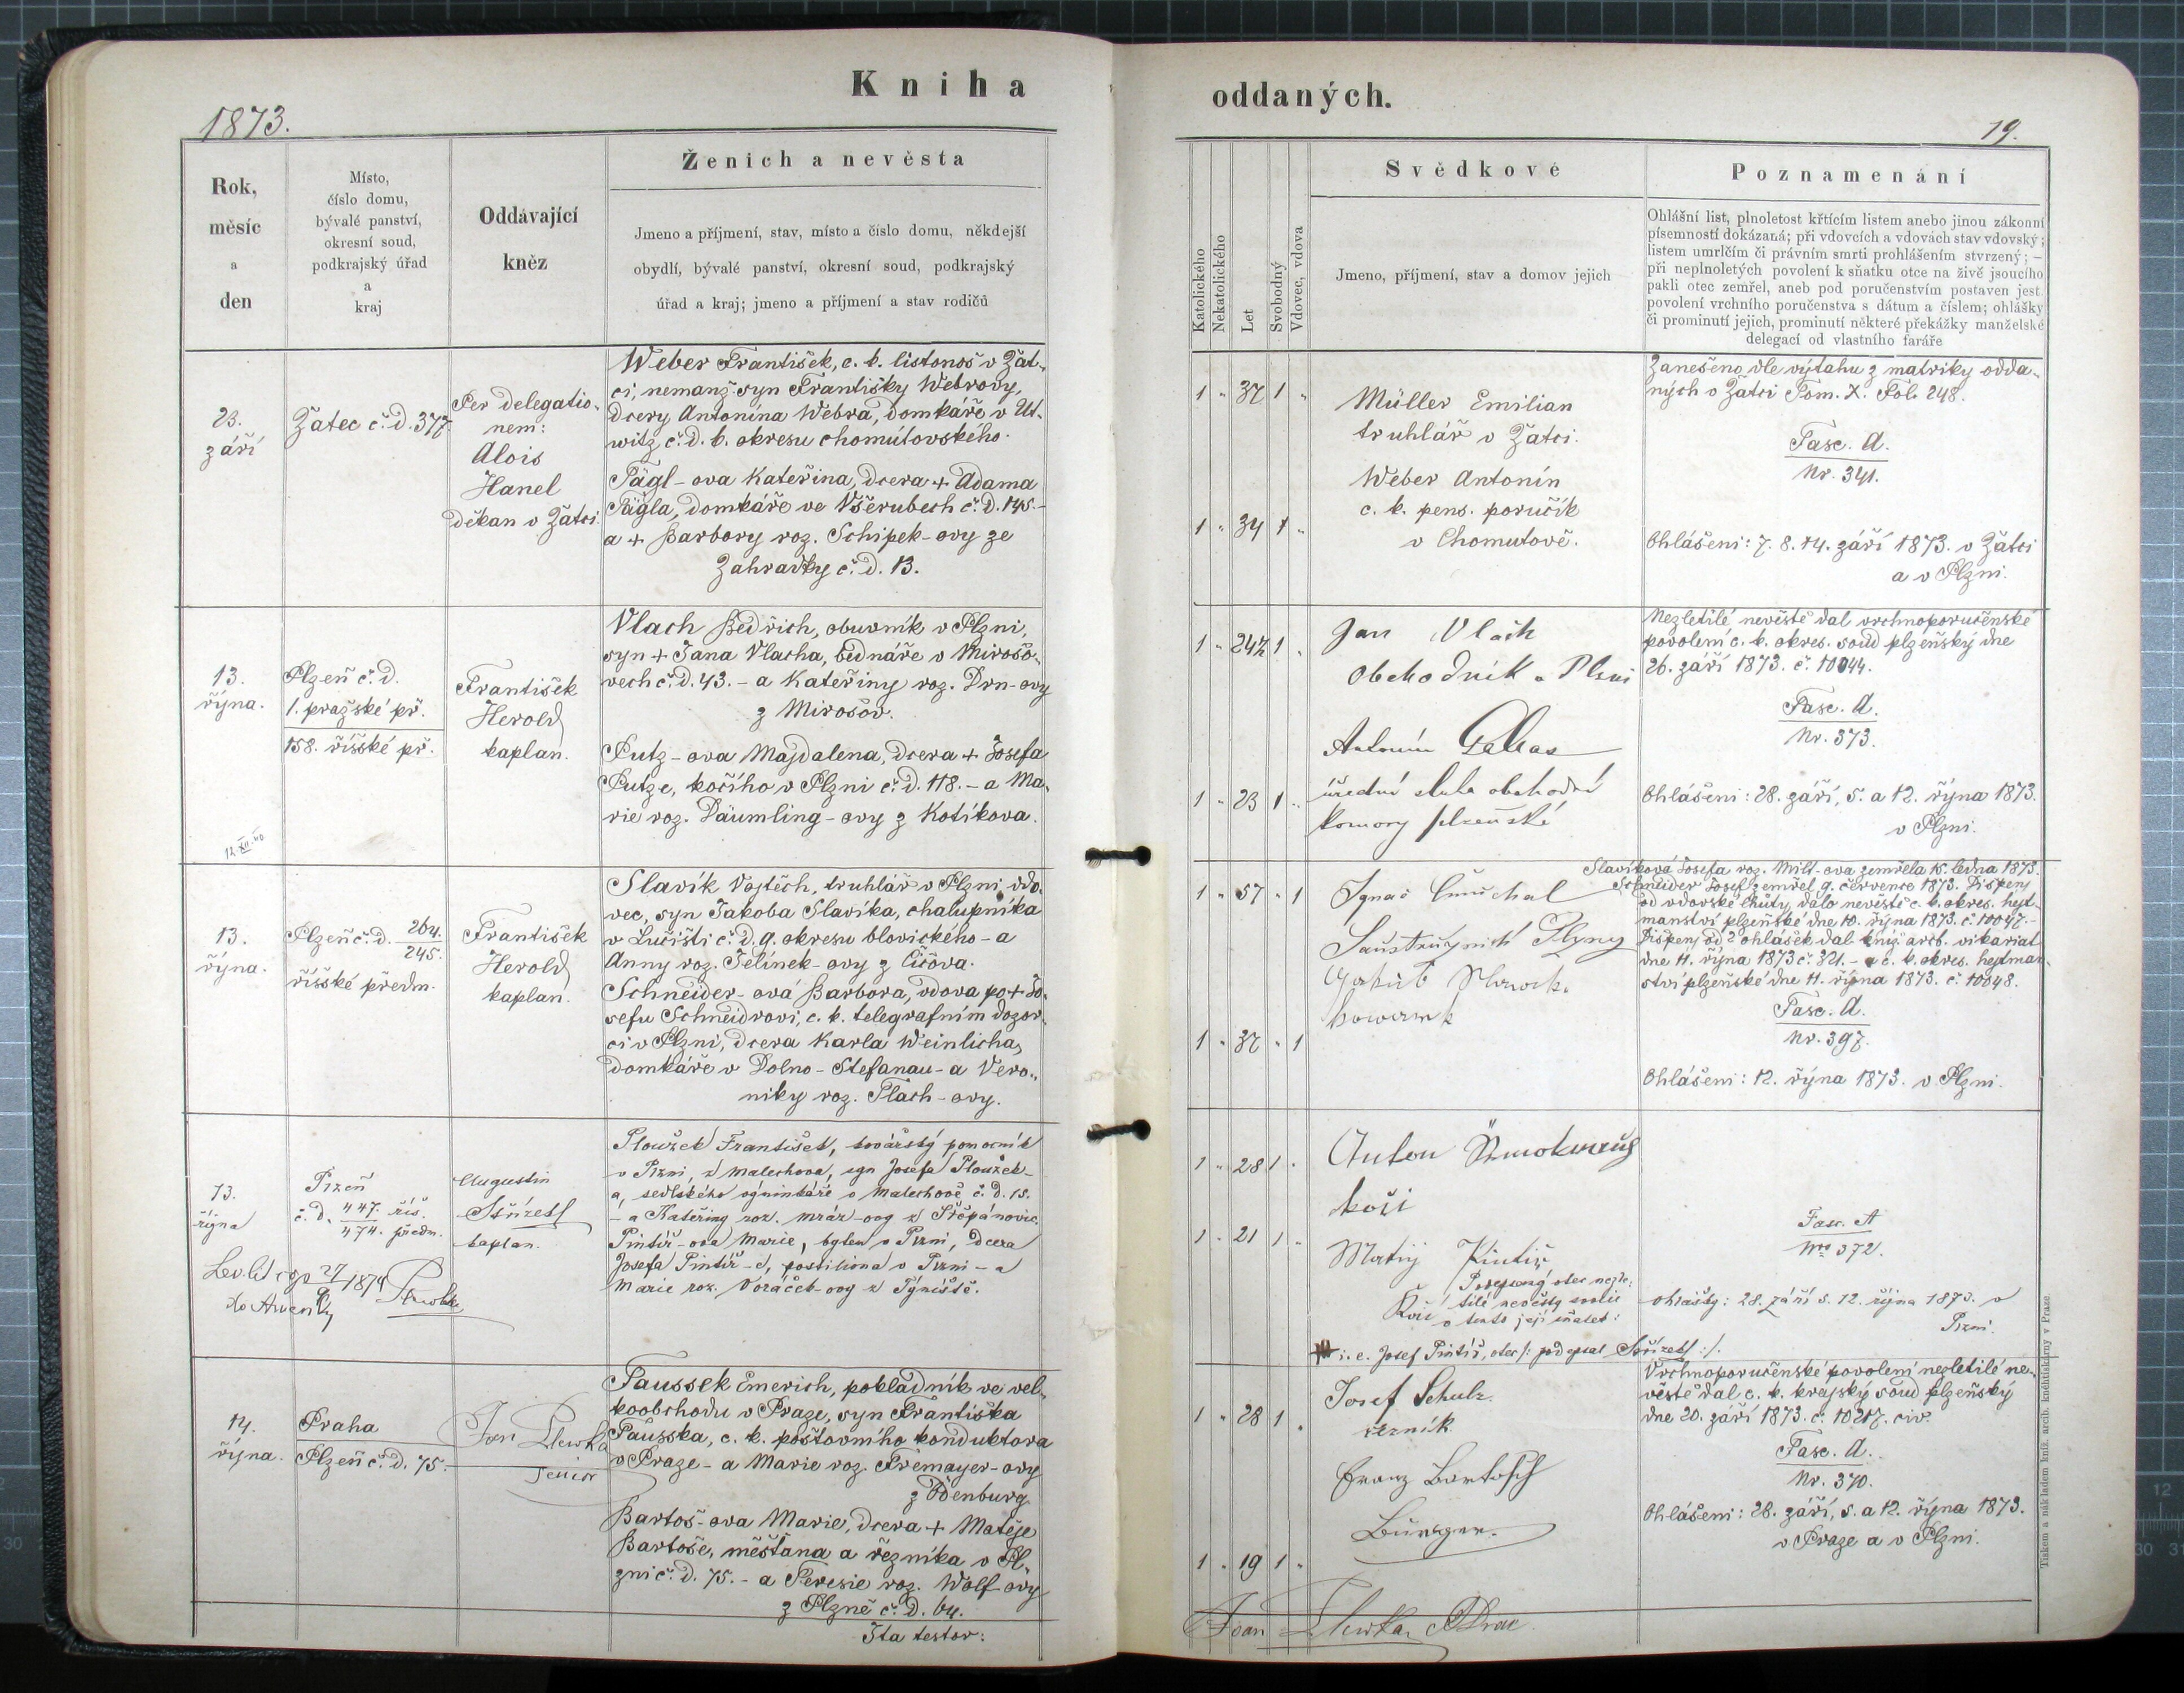 Kniha oddaných.
1873.
19.
Rok,
měsíc
a
den
Místo,
číslo domu,
bývalé panství,
okresní soud,
podkrajský úřad
a
kraj
Oddávající
kněz
Ženich a nevěsta
Jmeno a příjmení, stav, místo a číslo domu, někdejší
obydlí, bývalé panství, okresní soud, podkrajský
úřad a kraj; jmeno a příjmení a stav rodičů
Katolického
Nekatolického
Let
Svobodný
Vdovec, vdova
Svědkové
Jmeno, příjmení, stav a domov jejich
Poznamenání
Ohlášní list, plnoletost křtícím listem anebo jinou zákonní
písemností dokázaná; při vdovcích a vdovách stav vdovský;
listem umrlčím či právním smrti prohlášením stvrzený; —
při neplnoletých povolení k sňatku otce na živě jsoucího
pakli otec zemřel, aneb pod poručenstvím postaven jest
povolení vrchního poručenstva s dátum a číslem; ohlášky
či prominutí jejich, prominutí některé překážky manželské
delegací od vlastního faráře
23.
září
Žatec č. d. 377.
Per delegatio-
nem:
Alois
Hanel
děkan v Žatci.
Weber František, c. k. listonoš v Žat-
ci, nemanž. syn Františky Webrovy,
dcery Antonína Webra, domkáře v Ut-
witz, č. d. 6. okresu chomútovského.
Pägl-ova Kateřina, dcera + Adama
Pägla, domkáře ve Všerubech č. d. 145.-
a + Barbory roz. Schipek-ovy ze
Zahradky č. d. 13.
1 " 37 1 "
1 " 34 1 "
Müller Emilian
truhlář v Žatci.
Weber Antonín
c. k. pens. poručík
v Chomutově.
Zanešeno dle výtahu z matriky odda-
ných v Žatci Tom. X. Fol. 248.
Fasc. A.
Nr. 341.
Ohlášeni: 7. 8. 14. září 1873. v Žatci
a v Plzni.
13.
října.
12. XII. 40
Plzeň č. d.
1. pražské př.
158. říšské př.
František
Herold
kaplan.
Vlach Bedřich, obuvník v Plzni,
syn + Jana Vlacha, bednáře v Mirošo-
vech č. d. 43. - a Kateřiny roz. Drn-ovy
z Mirošov.
Putz-ova Majdalena, dcera + Josefa
Putze, kočího v Plzni č. d. 118. - a Ma-
rie roz. Däumling-ovy z Kotíkova.
1 " 24½ 1 "
1 " 23 1 "
Jan Vlach
Obchodník v Plzni
Antonín
úřední sluha obchodní
komory plzeňské
Nezletilé nevěstě dal vrchnoporučenské
povolení c. k. okres. soud plzeňský dne
26. září 1873. č. 10044.
Fasc. A.
Nr. 373.
Ohlášeni: 28. září, 5. a 12. října 1873.
v Plzni.
13.
října.
Plzeň č. d. 264.
245.
říšské předm.
František
Herold
kaplan.
Slavík Vojtěch, truhlář v Plzni, vdo-
vec, syn Jakoba Slavíka, chalupníka
v Lučišti č. d. 9. okresu blovického - a
Anny roz. Jelínek-ovy z Čičova.
Schneider-ová Barbora, vdova po + Jo-
sefu Schneidrovi, c. k. telegrafním dozor-
ci v Plzni, dcera Karla Weinlicha,
domkáře v Dolno-Stefanau - a Vero-
niky roz. Plach-ovy.
1 " 57 " 1
1 " 37 " 1
Ignac
Plzny
Slavíková Josefa roz. Milt-ova zemřela 15. ledna 1873.
Schneider Josef zemřel 9. července 1873. Dispens
od vdovské lhuty, dalo nevěstě c. k. okres. hejt-
manství plzeňské dne 10. října 1873. č. 10047.-
Dispens od 2 ohlášek dal kníž. arcb. vikariat
dne 11. října 1873 č. 321. - a c. k. okres. hejtman-
ství plzeňské dne 11. října 1873. č. 10048.
Fasc. A.
Nr. 397.
Ohlášeni: 12. října 1873. v Plzni.
13.
října
Plzeň
č. d. 447. říš.
474. předm.
Augustin
Střízetl
kaplan.
Ploužek František, kovářský pomocník
v Plzni, z Malechova, syn Josefa Ploužek-
a, sedlského výminkáře v Malechově č. d. 15.
- a Kateřiny roz. Mráz-ovy z Štěpánovic.
Pintíř-ova Marie, bytem v Plzni, dcera
Josefa Pintíř-e, postiliona v Plzni - a
Marie roz. Voráček-ovy z Týniště.
1 " 28 1 "
1 " 21 1 "
Anton
kočí
Matěj Pintíř
Kočí
Podepsaný otec nezle-
tilé nevěsty svolil
v tento její sňatek:
i. e. Josef Pintíř, otec /: podepsal Střízetl :/.
Fasc. A
Nro 372.
Ohlášky: 28. září 5. 12. října 1873. v
Plzni.
14.
října.
Praha
Plzeň č. d. 75.
Jan Plewka
Senior
Taussek Emerich, pokladník ve vel-
koobchodu v Praze, syn Františka
Tausska, c. k. poštovního konduktora
v Praze - a Marie roz. Fremayer-ovy
z Ödenburg.
Bartoš-ova Marie, dcera + Matěje
Bartoše, měšťana a řezníka v Pl-
zni č. d. 75. - a Teresie roz. Wolf-ovy
z Plzně č. d. 64.
Ita testor:
1 " 28 1 "
1 " 19 1 "
Josef Schulz
řezník
Franz Bartosch
Bürger.
Vrchnoporučenské povolení nezletilé ne-
věstě dal c. k. krajský soud plzeňský
dne 20. září 1873. č. 10217. civ.
Fasc. A.
Nr. 370.
Ohlášeni: 28. září, 5. a 12. října 1873.
v Praze a v Plzni.
Jan Plewka
Tiskem a nákladem kníž. arcib. knihtiskárny v Praze.